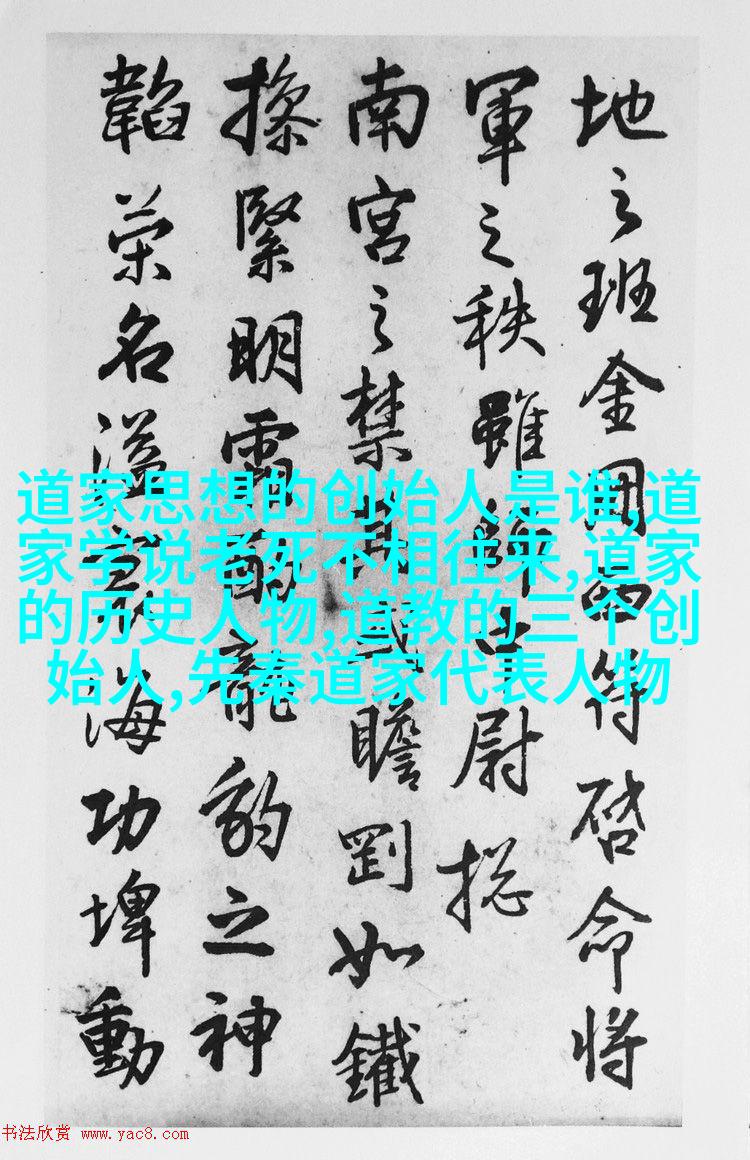 地之班金用符啓命将
軍之秩雖師尉揔
南宮之禁瞻剛如鐵
操緊明霜龍豹之神
韜榮名溢寰海功埤動
道家思想的创始人是谁,道
家学说老死不相往来,道家
的历史人物,道教的三个创
始人,先秦道家代表人物
书法欣赏 www.yac8.com